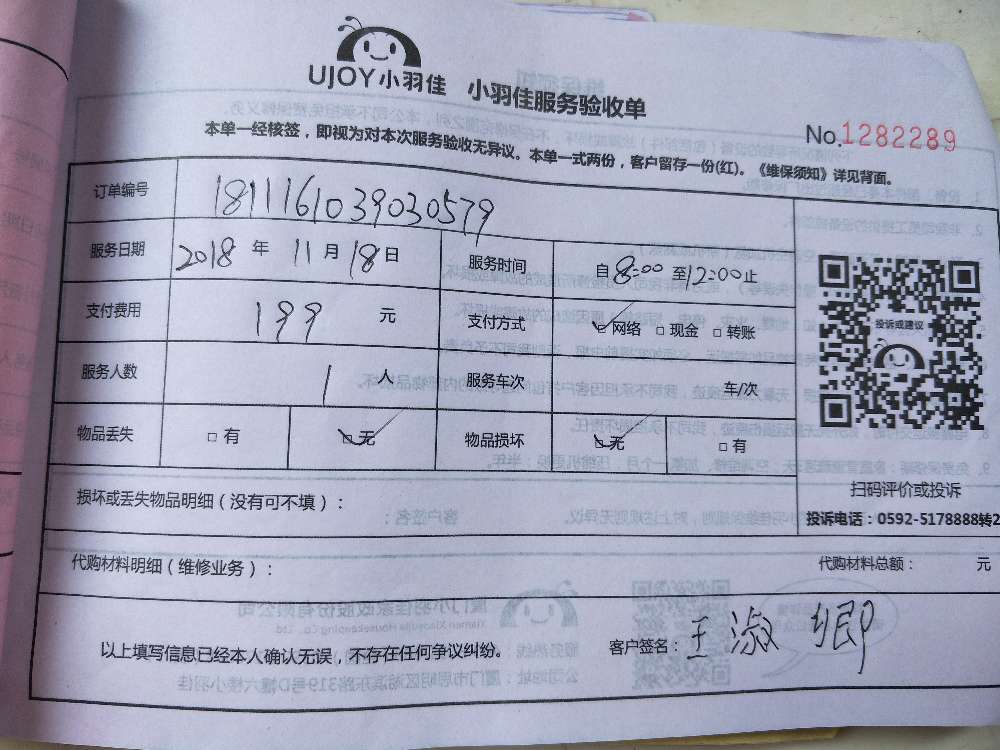 UJOY小羽佳 小羽佳服务验收单
No.1282289
本单一经核签，即视为对本次服务验收无异议。本单一式两份，客户留存一份(红)。《维保须知》详见背面。
订单编号 1811161039030579
服务日期 2018 年 11 月 18 日 服务时间 自 8:00 至 12:00 止
支付费用 199 元 支付方式 ☑网络 □现金 □转账
服务人数 1 人 服务车次 车/次
物品丢失 □有 ☑无 物品损坏 ☑无 □有
投诉或建议
扫码评价或投诉
投诉电话：0592-5178888转2
损坏或丢失物品明细（没有可不填）：
代购材料明细（维修业务）： 代购材料总额： 元
以上填写信息已经本人确认无误，不存在任何争议纠纷。 客户签名：王淑